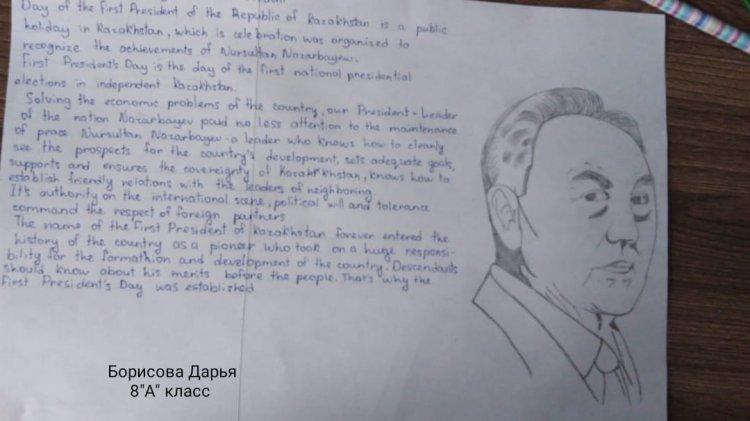 Day of the first President of the Republic of Kazakhstan is a public
holiday in Kazakhstan, which is celebration was organized to
recognize the achievements of Nursultan Nazarbayev.
First President's Day is the day of the first national presidential
elections in independent Kazakhstan.
Solving the economic problems of the country, our President - Leader
of the nation Nazarbayev paid no less attention to the maintenance
of peace Nursultan Nazarbayev - a leader who knows how to clearly
see the prospects for the country's development, sets adequate goals,
supports and ensures the covereignty of Kazakhkhstan, knows how to
establish friendly relations with the leaders of neighboring.
It's authority on the international scene, political will and tolerance
command the respect of foreign partners
The name of the First President of Kazakhstan forever entered the
history of the country as a pioneer who took on a huge responsi-
bility for the formathion and development of the country. Descendants
should know about his merits before the people. That's why the
First President's Day was established
Борисова Дарья
8"А" класс